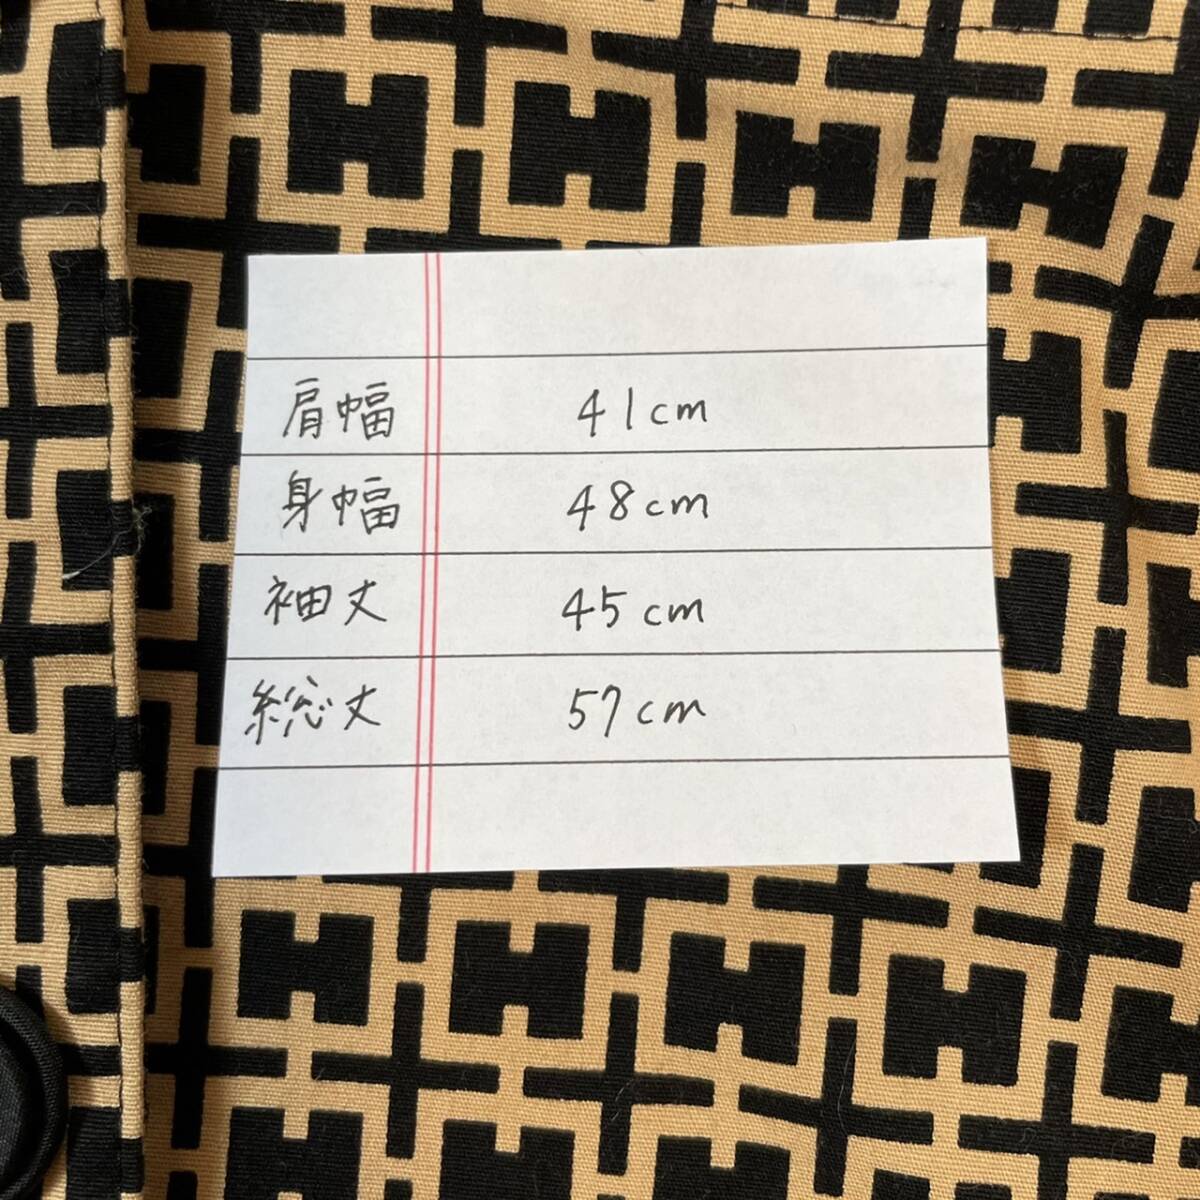 肩幅 41cm
身幅 48cm
袖丈 45cm
総丈 57cm